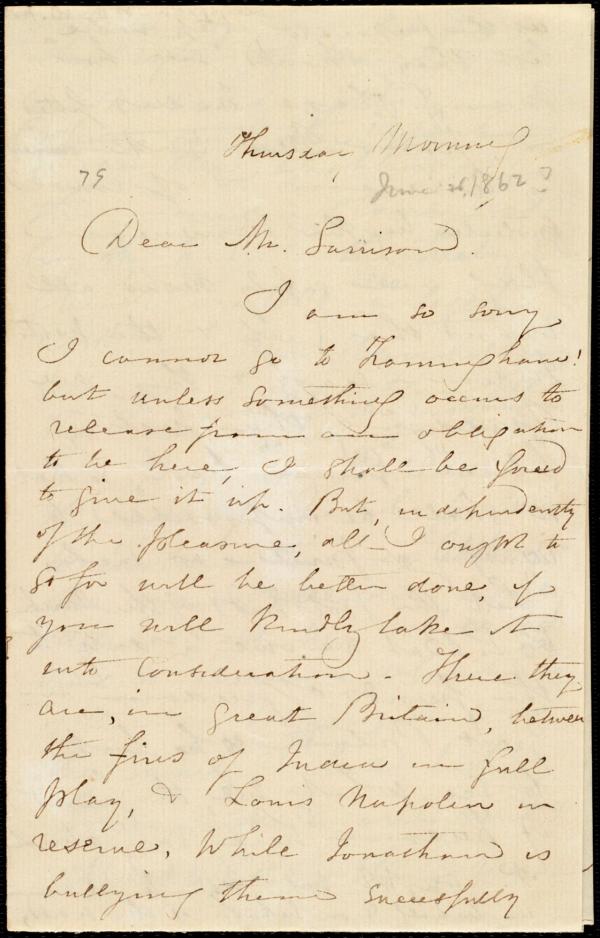 Thursday Morning
75
June 26, 1862?
Dear Mr. Garrison.
I am so sorry
I cannot go to Framingham!
but unless something occurs to
release from an obligation
to be here, I shall be forced
to give it up. But, independently
of the pleasure, all I ought to
go for will be better done, if
you will kindly take it
into consideration. There they
are, in great Britain, between
the fires of India in full
play, & Louis Napoleon in
reserve, While Jonathan is
bullying them sucessfully